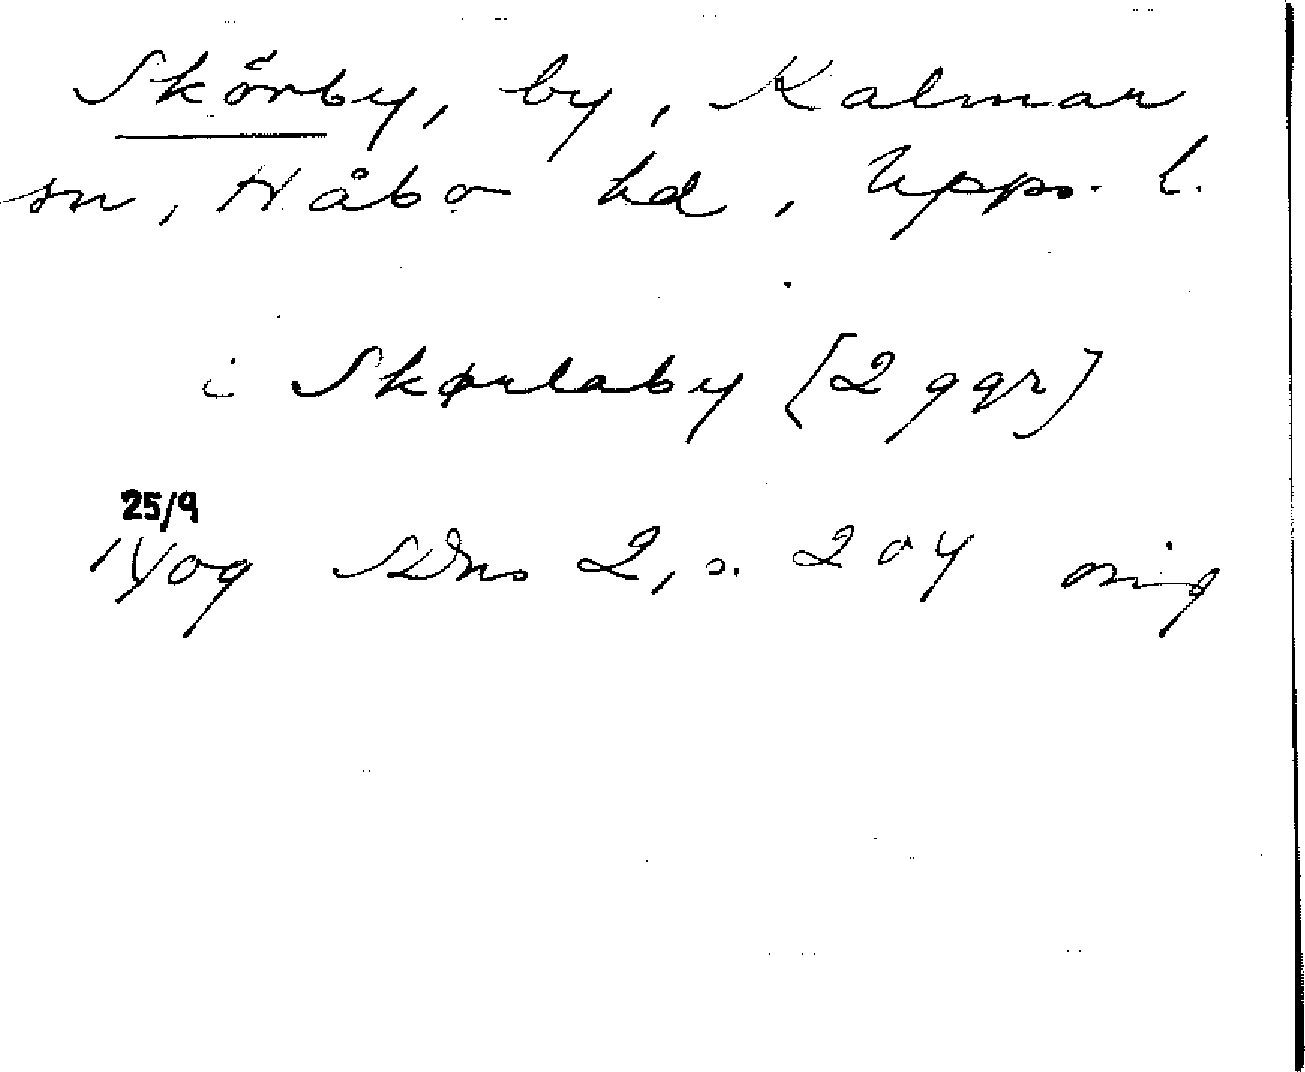 Skörby, by, Kalmar
sn, Håbo hd, Upps. l.
i Skørlaby [2 ggr]
25/9
1409 SDns 2, s. 204 orig